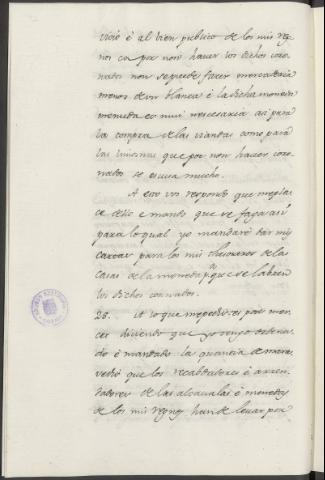 vicio é al bien publico de los mis reg
nos ca por non haver los dichos coro
nados non se puede facer mercaduria
menos de un blanca é la dicha moneda
menuda es mui necesaria asi para
la compra de las viandas como para
las limosnas que por non haver coro
nados se escusa mucho.
A esto vos respondo que me plas
ce dello é mando que se faga asi
para lo qual yo mandaré dar mis
cartas para los mis thesoreros de las
casas de la moneda pa. que se labren
los dichos cornados.
28. A lo que me pedistes por mer
cer diciendo que yo tengo ordena
do é mandado la quantia de marav
vedis que los recabdadores é arren
dadores de las alcavalas é monedas
de los mis regnos han de levar por